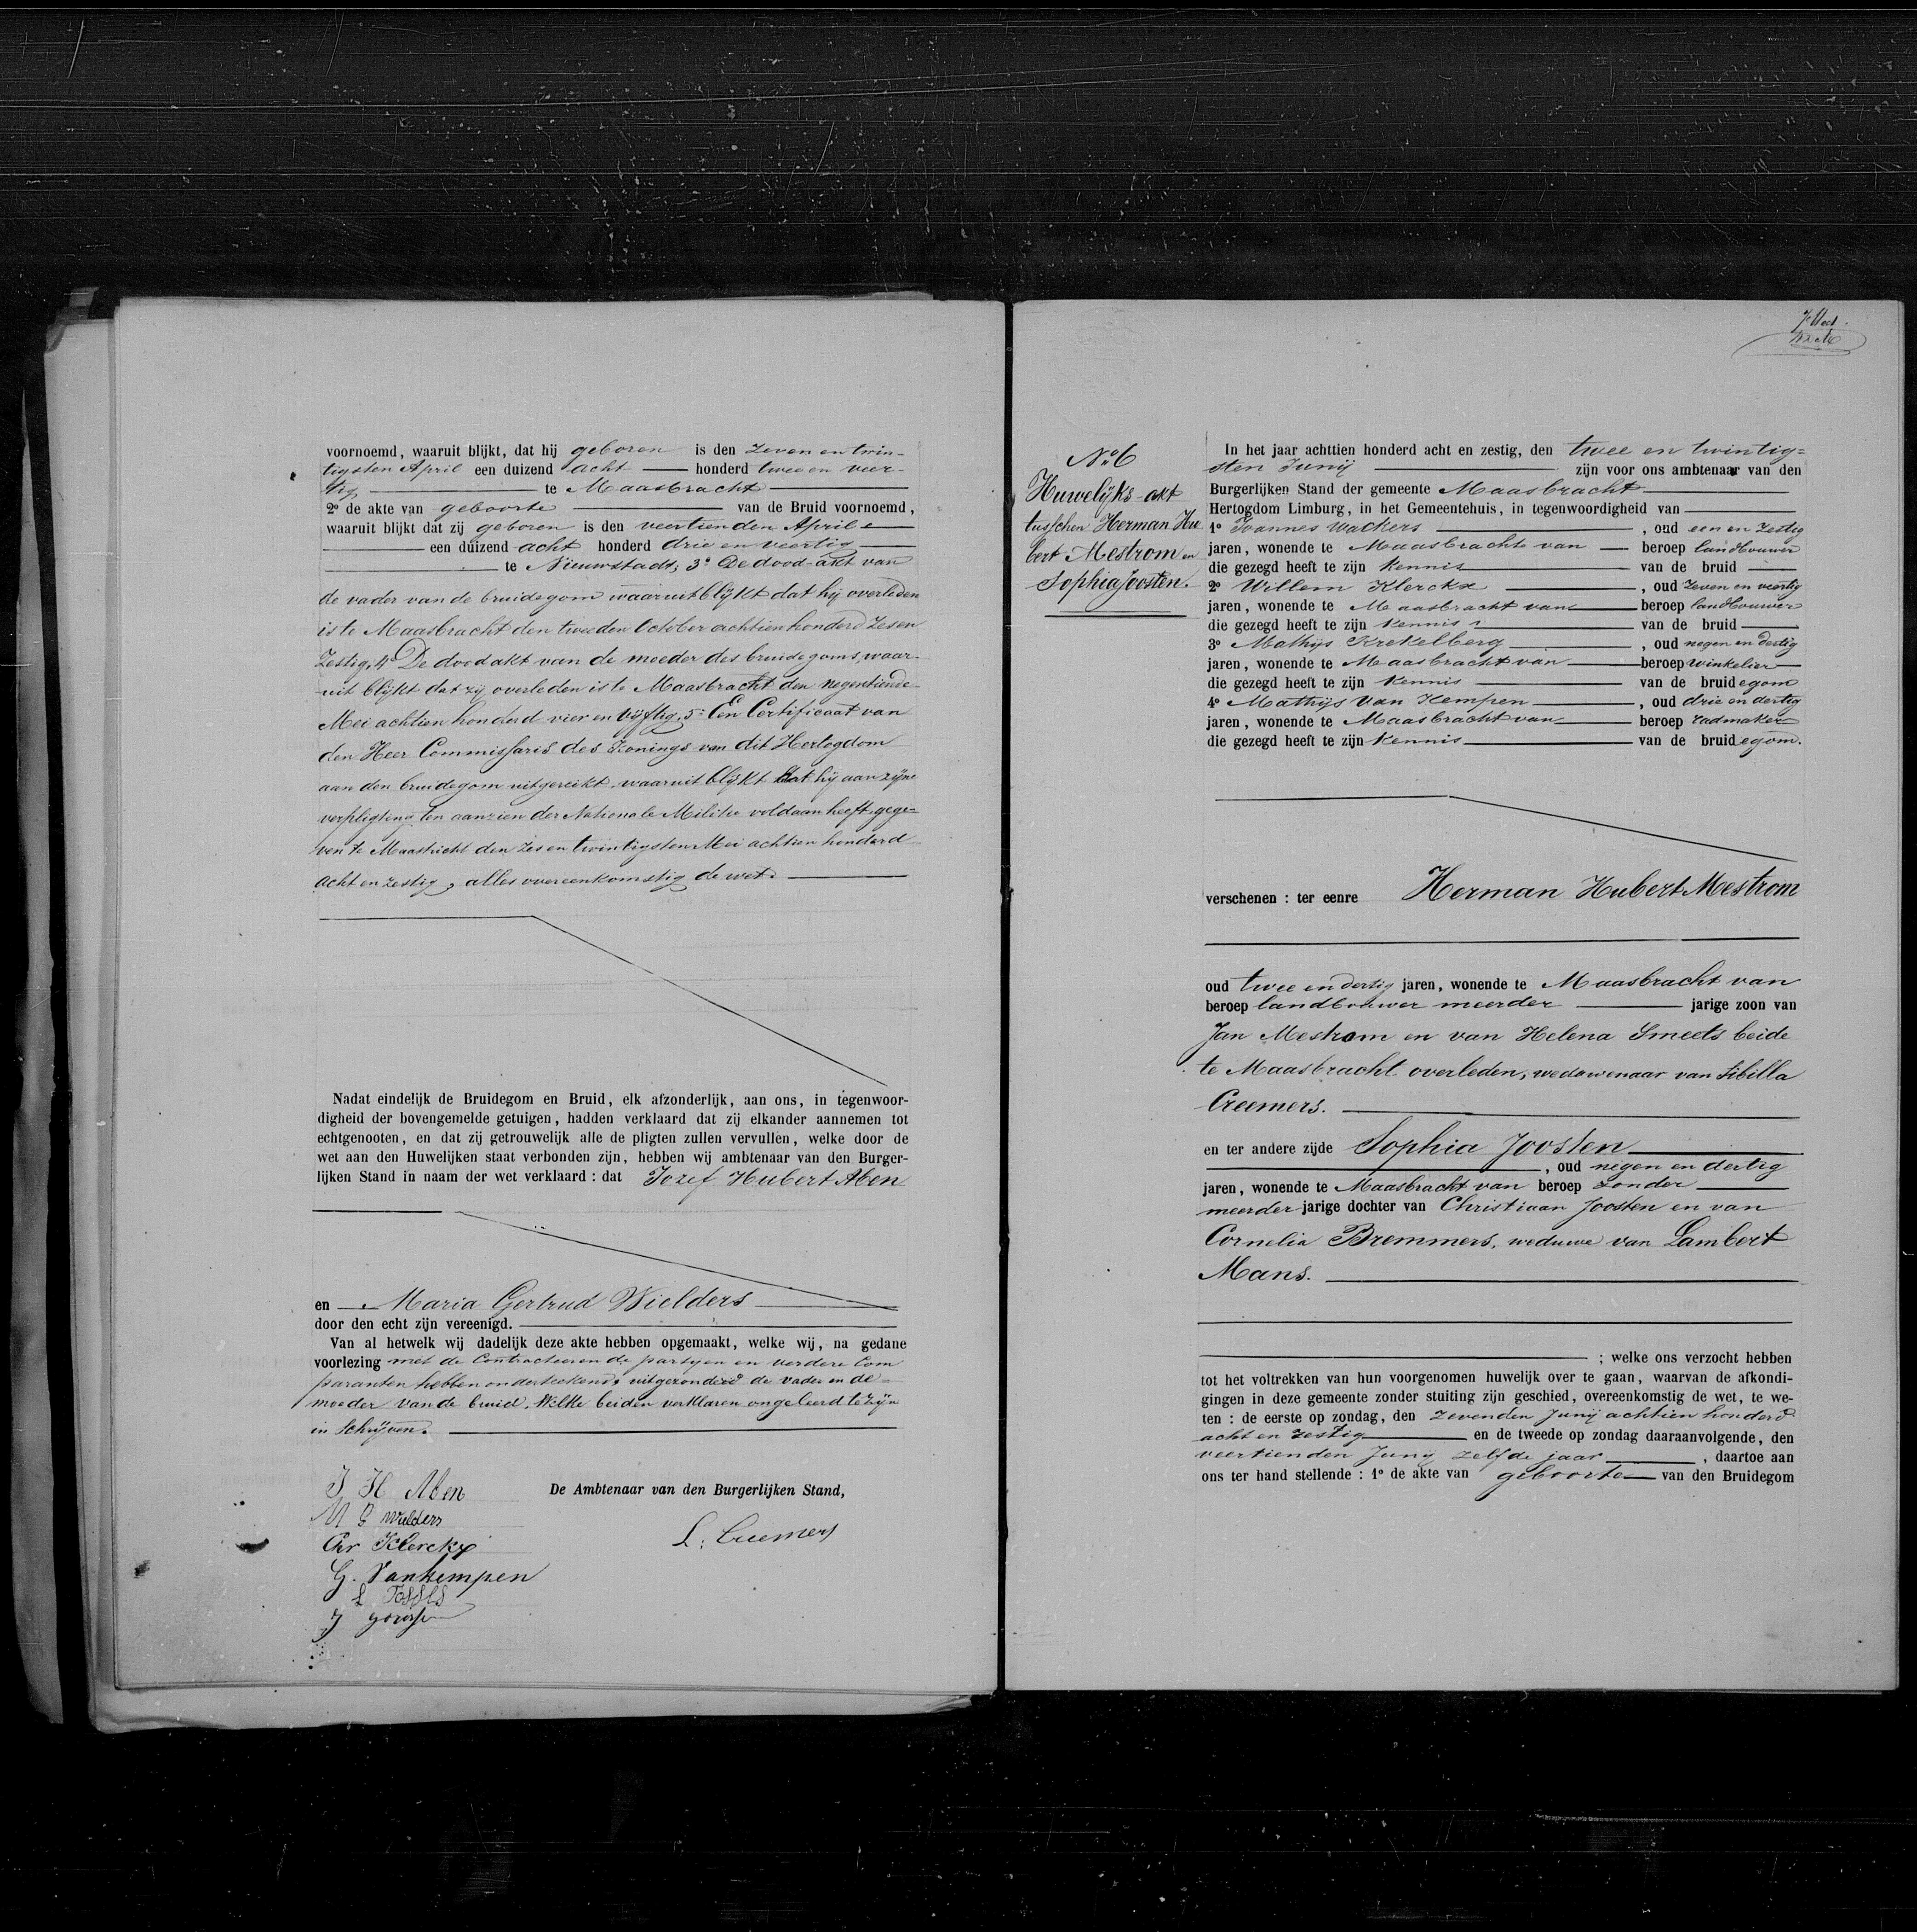 voornoemd, waaruit blijkt, dat hij geboren is den zeven en twin-
tigsten April een duizend acht honderd twee en veer-
tig te Maasbracht
2º de akte van geboorte van de Bruid voornoemd,
waaruit blijkt dat zij geboren is den veertienden April
een duizend acht honderd drie en veertig
te Nieuwstadt; 3º De dood-akt van
de vader van de bruidegom waaruit blijkt dat hij overleden
is te Maasbracht den tweeden October achtien honderd zes en
zestig, 4º De dood akt van de moeder des bruidegoms, waar-
uit blijkt dat zij overleden is te Maasbracht den negentiende
Mei achtien honderd vier en vijftig, 5º Een Certificaat van
den Heer Commissaris des Konings van dit Hertogdom
aan den bruidegom uitgereikt, waaruit blijkt dat hij aan zijne
verpligting ten aanzien der Nationale Militie voldaan heeft, gege-
ven te Maastricht den zes en twintigsten Mei achtien honderd
acht en zestig, alles overeenkomstig de wet.
Nadat eindelijk de Bruidegom en Bruid, elk afzonderlijk, aan ons, in tegenwoor-
digheid der bovengemelde getuigen, hadden verklaard dat zij elkander aannemen tot
echtgenooten, en dat zij getrouwelijk alle de pligten zullen vervullen, welke door de
wet aan den Huwelijken staat verbonden zijn, hebben wij ambtenaar van den Burger-
lijken Stand in naam der wet verklaard : dat Jozef Hubert Aben
en Maria Gertrud Wielders
door den echt zijn vereenigd.
Van al hetwelk wij dadelijk deze akte hebben opgemaakt, welke wij, na gedane
voorlezing met de Contracteerende partyen en verdere Com
paranten hebben onderteekend, uitgezonderd de vader en de
moeder van de bruid, Welke beiden verklaren ongeleerd te zijn
in Schrijven.
J H Aben
De Ambtenaar van den Burgerlijken Stand,
M G Wielders
L. Creemers
Chr Klerckx
G. Vankempen
No 6
Huwelijks-akt
tusschen Herman Hu
bert Mestrom en
Sophia Joosten.
In het jaar achttien honderd acht en zestig, den twee en twintig-
sten Junij zijn voor ons ambtenaar van den
Burgerlijken Stand der gemeente Maasbracht
Hertogdom Limburg, in het Gemeentehuis, in tegenwoordigheid van
1º Joannes Wackers, oud een en zestig
jaren, wonende te Maasbracht van beroep landbouwer
die gezegd heeft te zijn kennis van de bruid
2º Willem Klerckx, oud zeven en veertig
jaren, wonende te Maasbracht van beroep landbouwer
die gezegd heeft te zijn kennis van de bruid
3º Mathijs Krekelberg, oud negen en dertig
jaren, wonende te Maasbracht van beroep winkelier
die gezegd heeft te zijn kennis van de bruidegom
4º Mathijs Van Kempen, oud drie en dertig
jaren, wonende te Maasbracht van beroep radmaker
die gezegd heeft te zijn kennis van de bruidegom.
verschenen : ter eenre Herman Hubert Mestrom
oud twee en dertig jaren, wonende te Maasbracht van
beroep landbouwer meerder jarige zoon van
Jan Mestrom en van Helena Smeets beide
te Maasbracht overleden, weduwenaar van Sibilla
Creemers.
en ter andere zijde Sophia Joosten
, oud negen en dertig
jaren, wonende te Maasbracht van beroep zonder
meerder jarige dochter van Christiaan Joosten en van
Cornelia Bremmers, weduwe van Lambert
Mans.
; welke ons verzocht hebben
tot het voltrekken van hun voorgenomen huwelijk over te gaan, waarvan de afkondi-
gingen in deze gemeente zonder stuiting zijn geschied, overeenkomstig de wet, te we-
ten : de eerste op zondag, den zevenden Junij achtien honderd
acht en zestig en de tweede op zondag daaraanvolgende, den
veertienden Junij zelfde jaar, daartoe aan
ons ter hand stellende : 1º de akte van geboorte van den Bruidegom